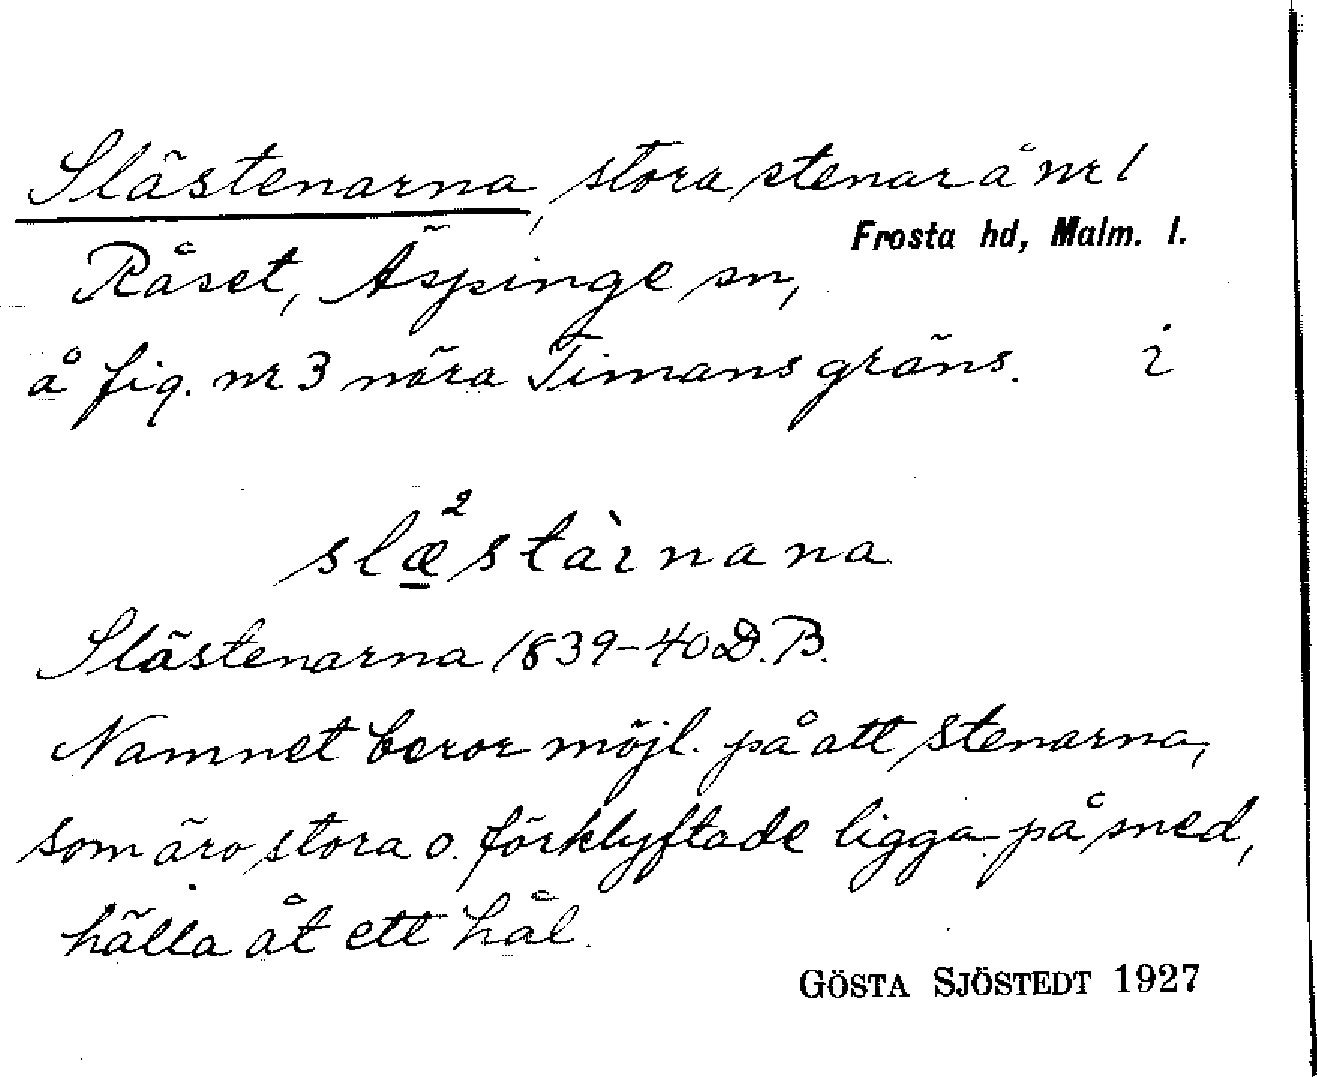 Slästenarna, stora stenar å nr 1
Frosta hd, Malm. l.
Råset, Äspinge sn,
å fig. nr 3 nära Timans gräns. i
slæ²stàrnana
Slästenarna 1839-40 D.B.
Namnet beror möjl. på att stenarna,
som äro stora o. förklyftade ligga på sned,
hälla åt ett hål.
GÖSTA SJÖSTEDT 1927